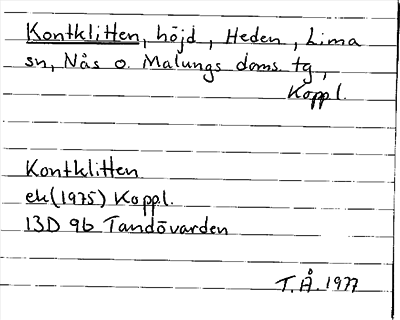 Kontklitten, höjd, Heden, Lima
sn, Nås o. Malungs doms. tg,
Koppl.
Kontklitten
ek(1975) Koppl.
13D 9b Tandövarden
T.Å. 1977